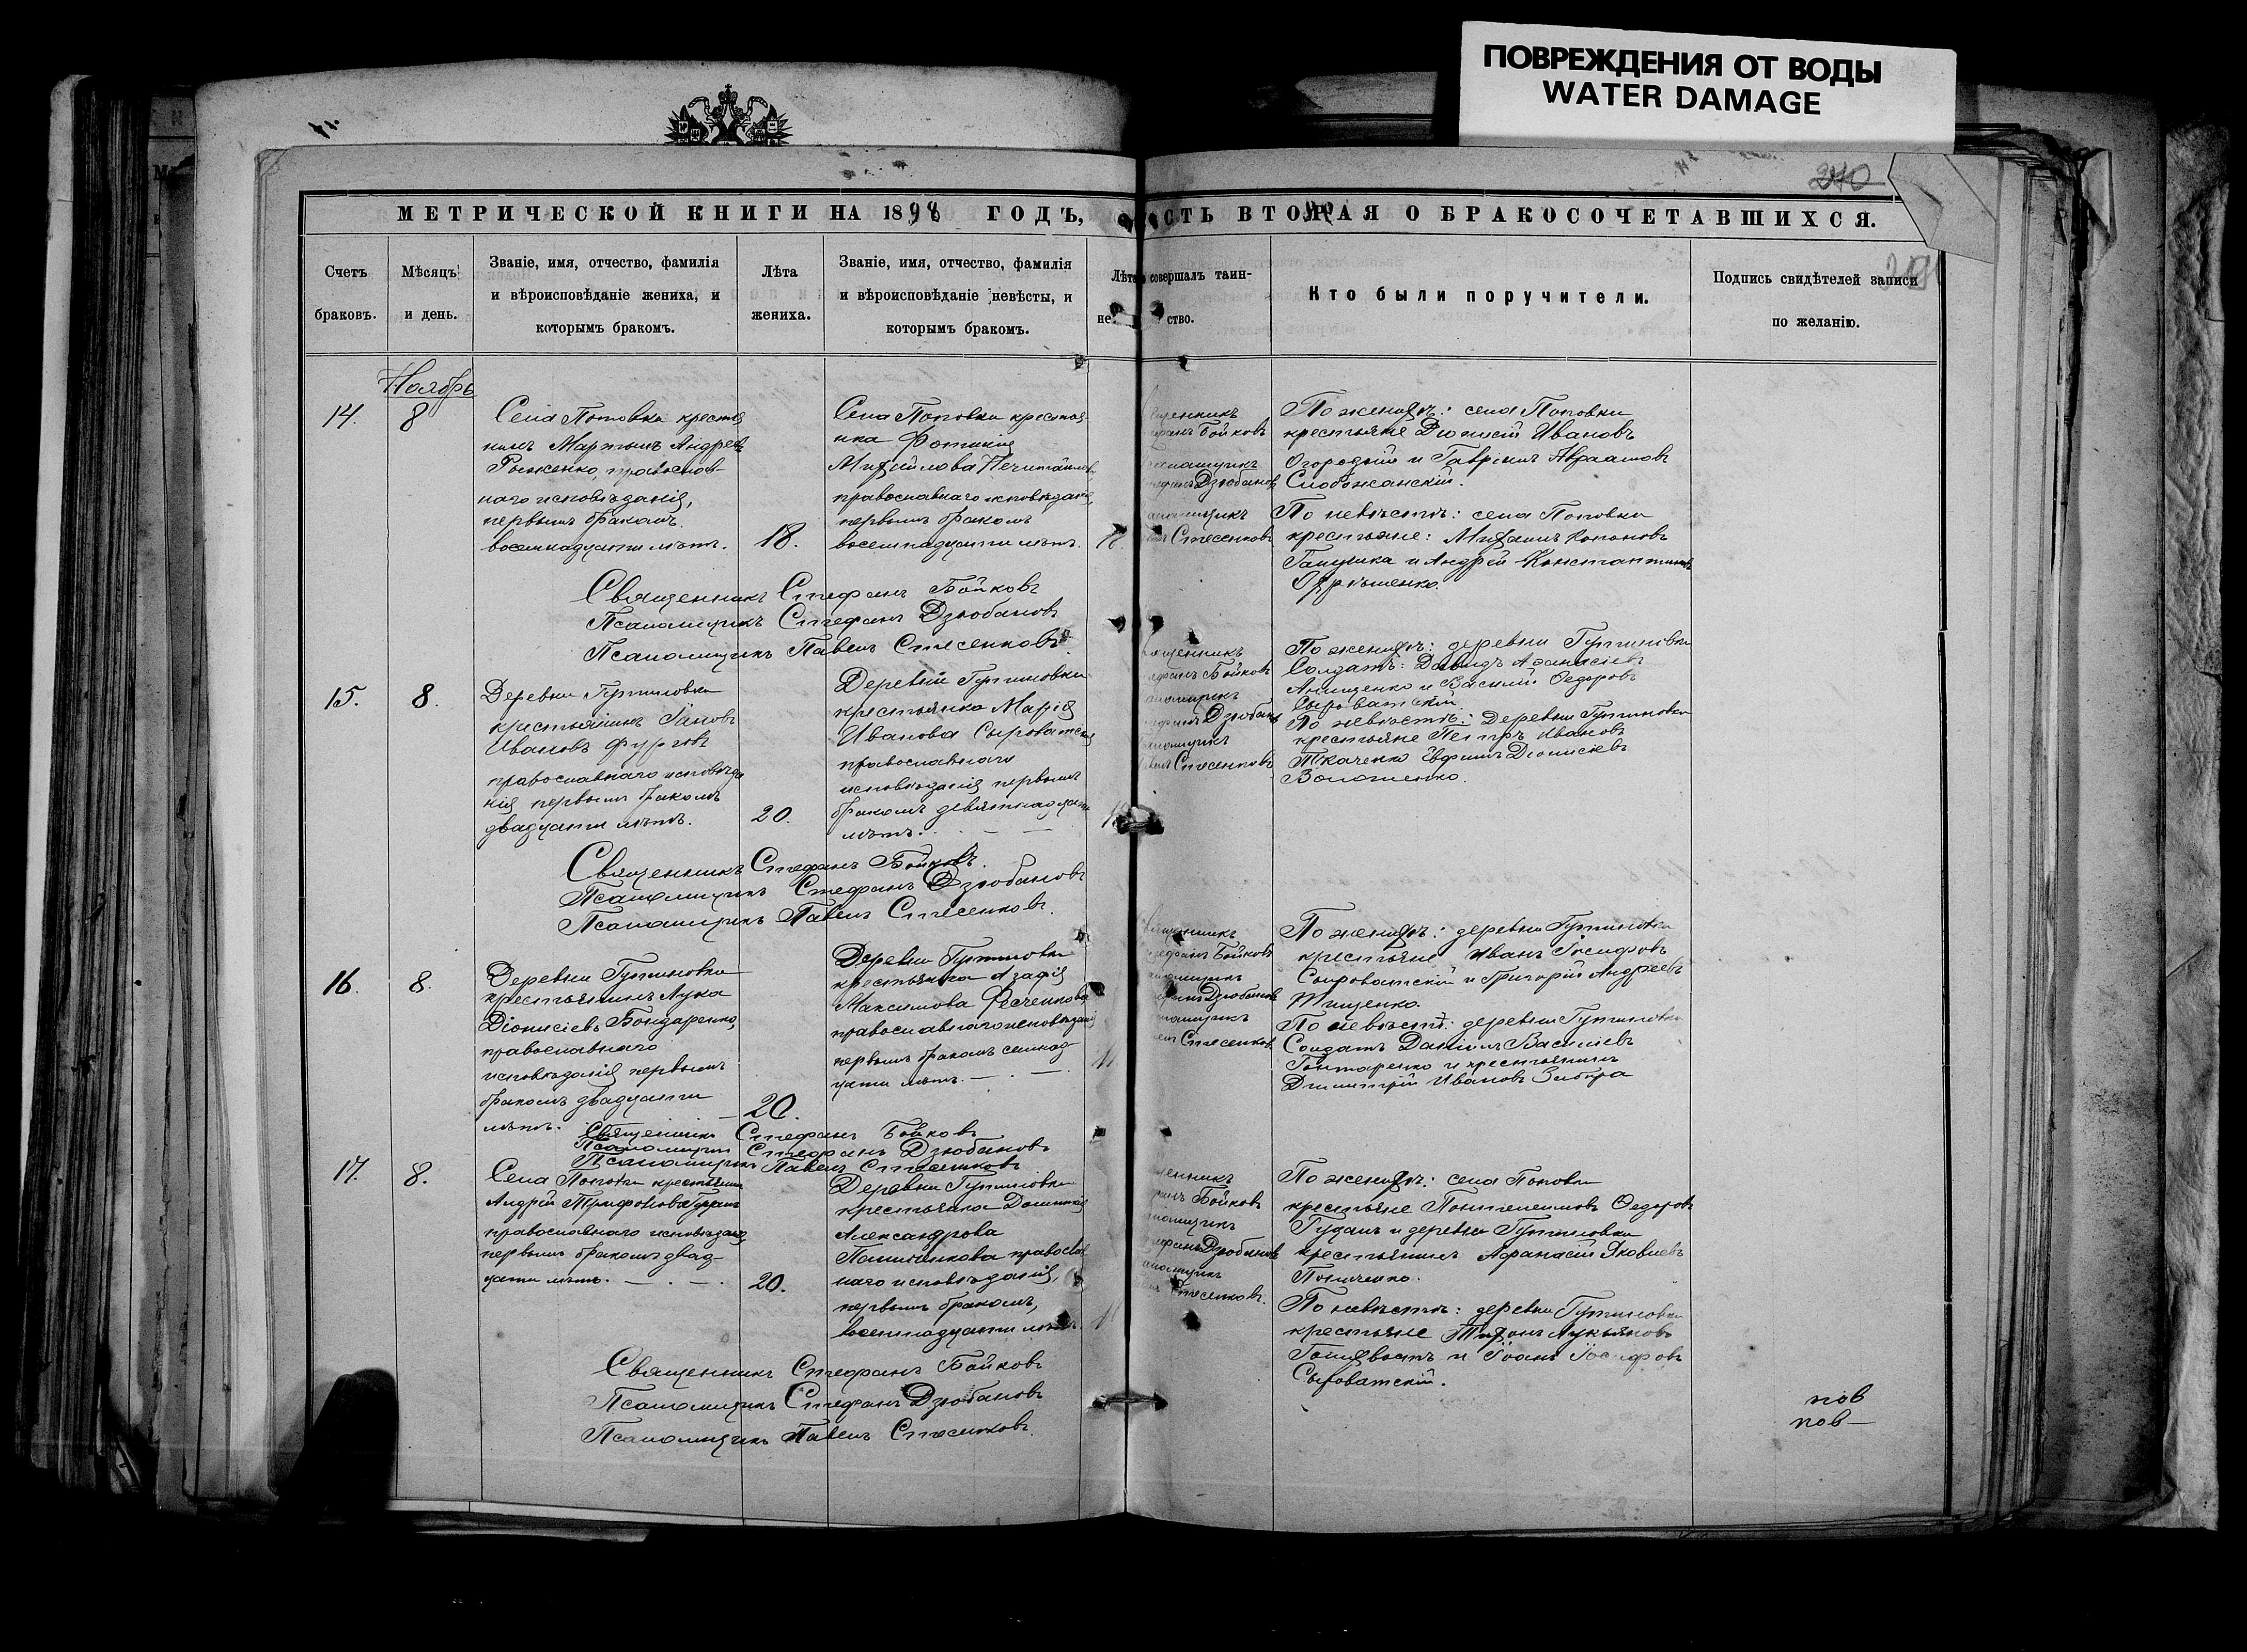 ПОВРЕЖДЕНИЯ ОТ ВОДЫ
WATER DAMAGE
240
МЕТРИЧЕСКОЙ КНИГИ НА 1898 ГОДЪ,
СТЬ ВТОРАЯ О БРАКОСОЧЕТАВШИХСЯ.
Счетъ
браковъ.
Мѣсяцъ
и день.
Званіе, имя, отчество, фамилія
и вѣроисповѣданіе жениха, и
которымъ бракомъ.
Лѣта
жениха.
Званіе, имя, отчество, фамилія
и вѣроисповѣданіе невѣсты, и
которымъ бракомъ.
Лѣта
не
совершалъ таин-
ство.
Кто были поручители.
Подпись свидѣтелей записи
по желанію.
Ноябрь
14.
8
Села Поповки крестья
нинъ Мартынъ Андреев
православ-
наго исповѣданія,
первымъ бракомъ.
восемнадцати лѣтъ.
18.
Села Поповки крестьян-
ка Фотинія
Михайлова
православнаго исповѣданія,
первымъ бракомъ
восемнадцати лѣтъ.
Бойковъ
Дзюбановъ
Стесенковъ
По женихѣ: села Поповки
крестьяне Діонисій Ивановъ
и Гавріилъ Авраамовъ
Слобожанскій.
По невѣстѣ: села Поповки
крестьяне: Михаилъ Кононовъ
и Андрей Константиновъ
Священникъ Стефанъ Бойковъ
Псаломщикъ Стефанъ Дзюбановъ
Псаломщикъ Павелъ Стесенковъ.
15.
8.
Деревни Гутиловки
крестьянинъ
Ивановъ
православнаго исповѣда
нія первымъ бракомъ
двадцати лѣтъ.
20.
Деревни Гутиловки
крестьянка Марія
Иванова Сыроватская
православнаго
исповѣданія первымъ
бракомъ девятнадцати
лѣтъ.
Бойковъ
Дзюбановъ
Стесенковъ
По женихѣ: деревни Гутиловки
Солдатъ: Давидъ Афанасіевъ
Анищенко и Василій Ѳедоровъ
Сыроватскій.
По невѣстѣ: Деревни Гутиловки
крестьяне Петръ Ивановъ
Ткаченко Евфимъ Діонисіевъ
Священникъ Стефанъ Бойковъ.
Псаломщикъ Стефанъ Дзюбановъ
Псаломщикъ Павелъ Стесенковъ.
16.
8.
Деревни Гутиловки
крестьянинъ Лука
Діонисіевъ Бондаренко,
православнаго
исповѣданія первымъ
бракомъ двадцати
лѣтъ.
20.
Деревни Гутиловки
крестьянка
Максимова Федченкова
православнаго исповѣданія
первымъ бракомъ семнад-
цати лѣтъ.
Бойковъ
Дзюбановъ
Стесенковъ
По женихѣ: деревни Гутиловки
крестьяне Иванъ Іосифовъ
Сыроватскій и Григорій Андреевъ
Тищенко.
По невѣстѣ: деревни Гутиловки
Солдатъ Даніилъ Василіевъ
Гонтаренко и крестьянинъ
Димитрій Ивановъ
Священникъ Стефанъ Бойковъ
Псаломщикъ Стефанъ Дзюбановъ
Псаломщикъ Павелъ Стесенковъ
17.
8.
Села Поповки крестьянинъ
Андрей Трифоновъ
православнаго исповѣданія
первымъ бракомъ двад-
цати лѣтъ.
20.
Деревни Гутиловки
крестьянка
Александрова
православ
наго исповѣданія,
первымъ бракомъ,
восемнадцати лѣтъ.
Бойковъ
Дзюбановъ
Стесенковъ.
По женихѣ: села Поповки
крестьяне Ѳедоровъ
и деревни Гутиловки
крестьянинъ Афанасій Яковлевъ
По невѣстѣ: деревни Гутиловки
крестьяне Тихонъ Лукьяновъ
и Іоанъ Іосифовъ
Сыроватскій.
Священникъ Стефанъ Бойковъ
Псаломщикъ Стефанъ Дзюбановъ
Псаломщикъ Павелъ Стесенковъ.
пов
пов